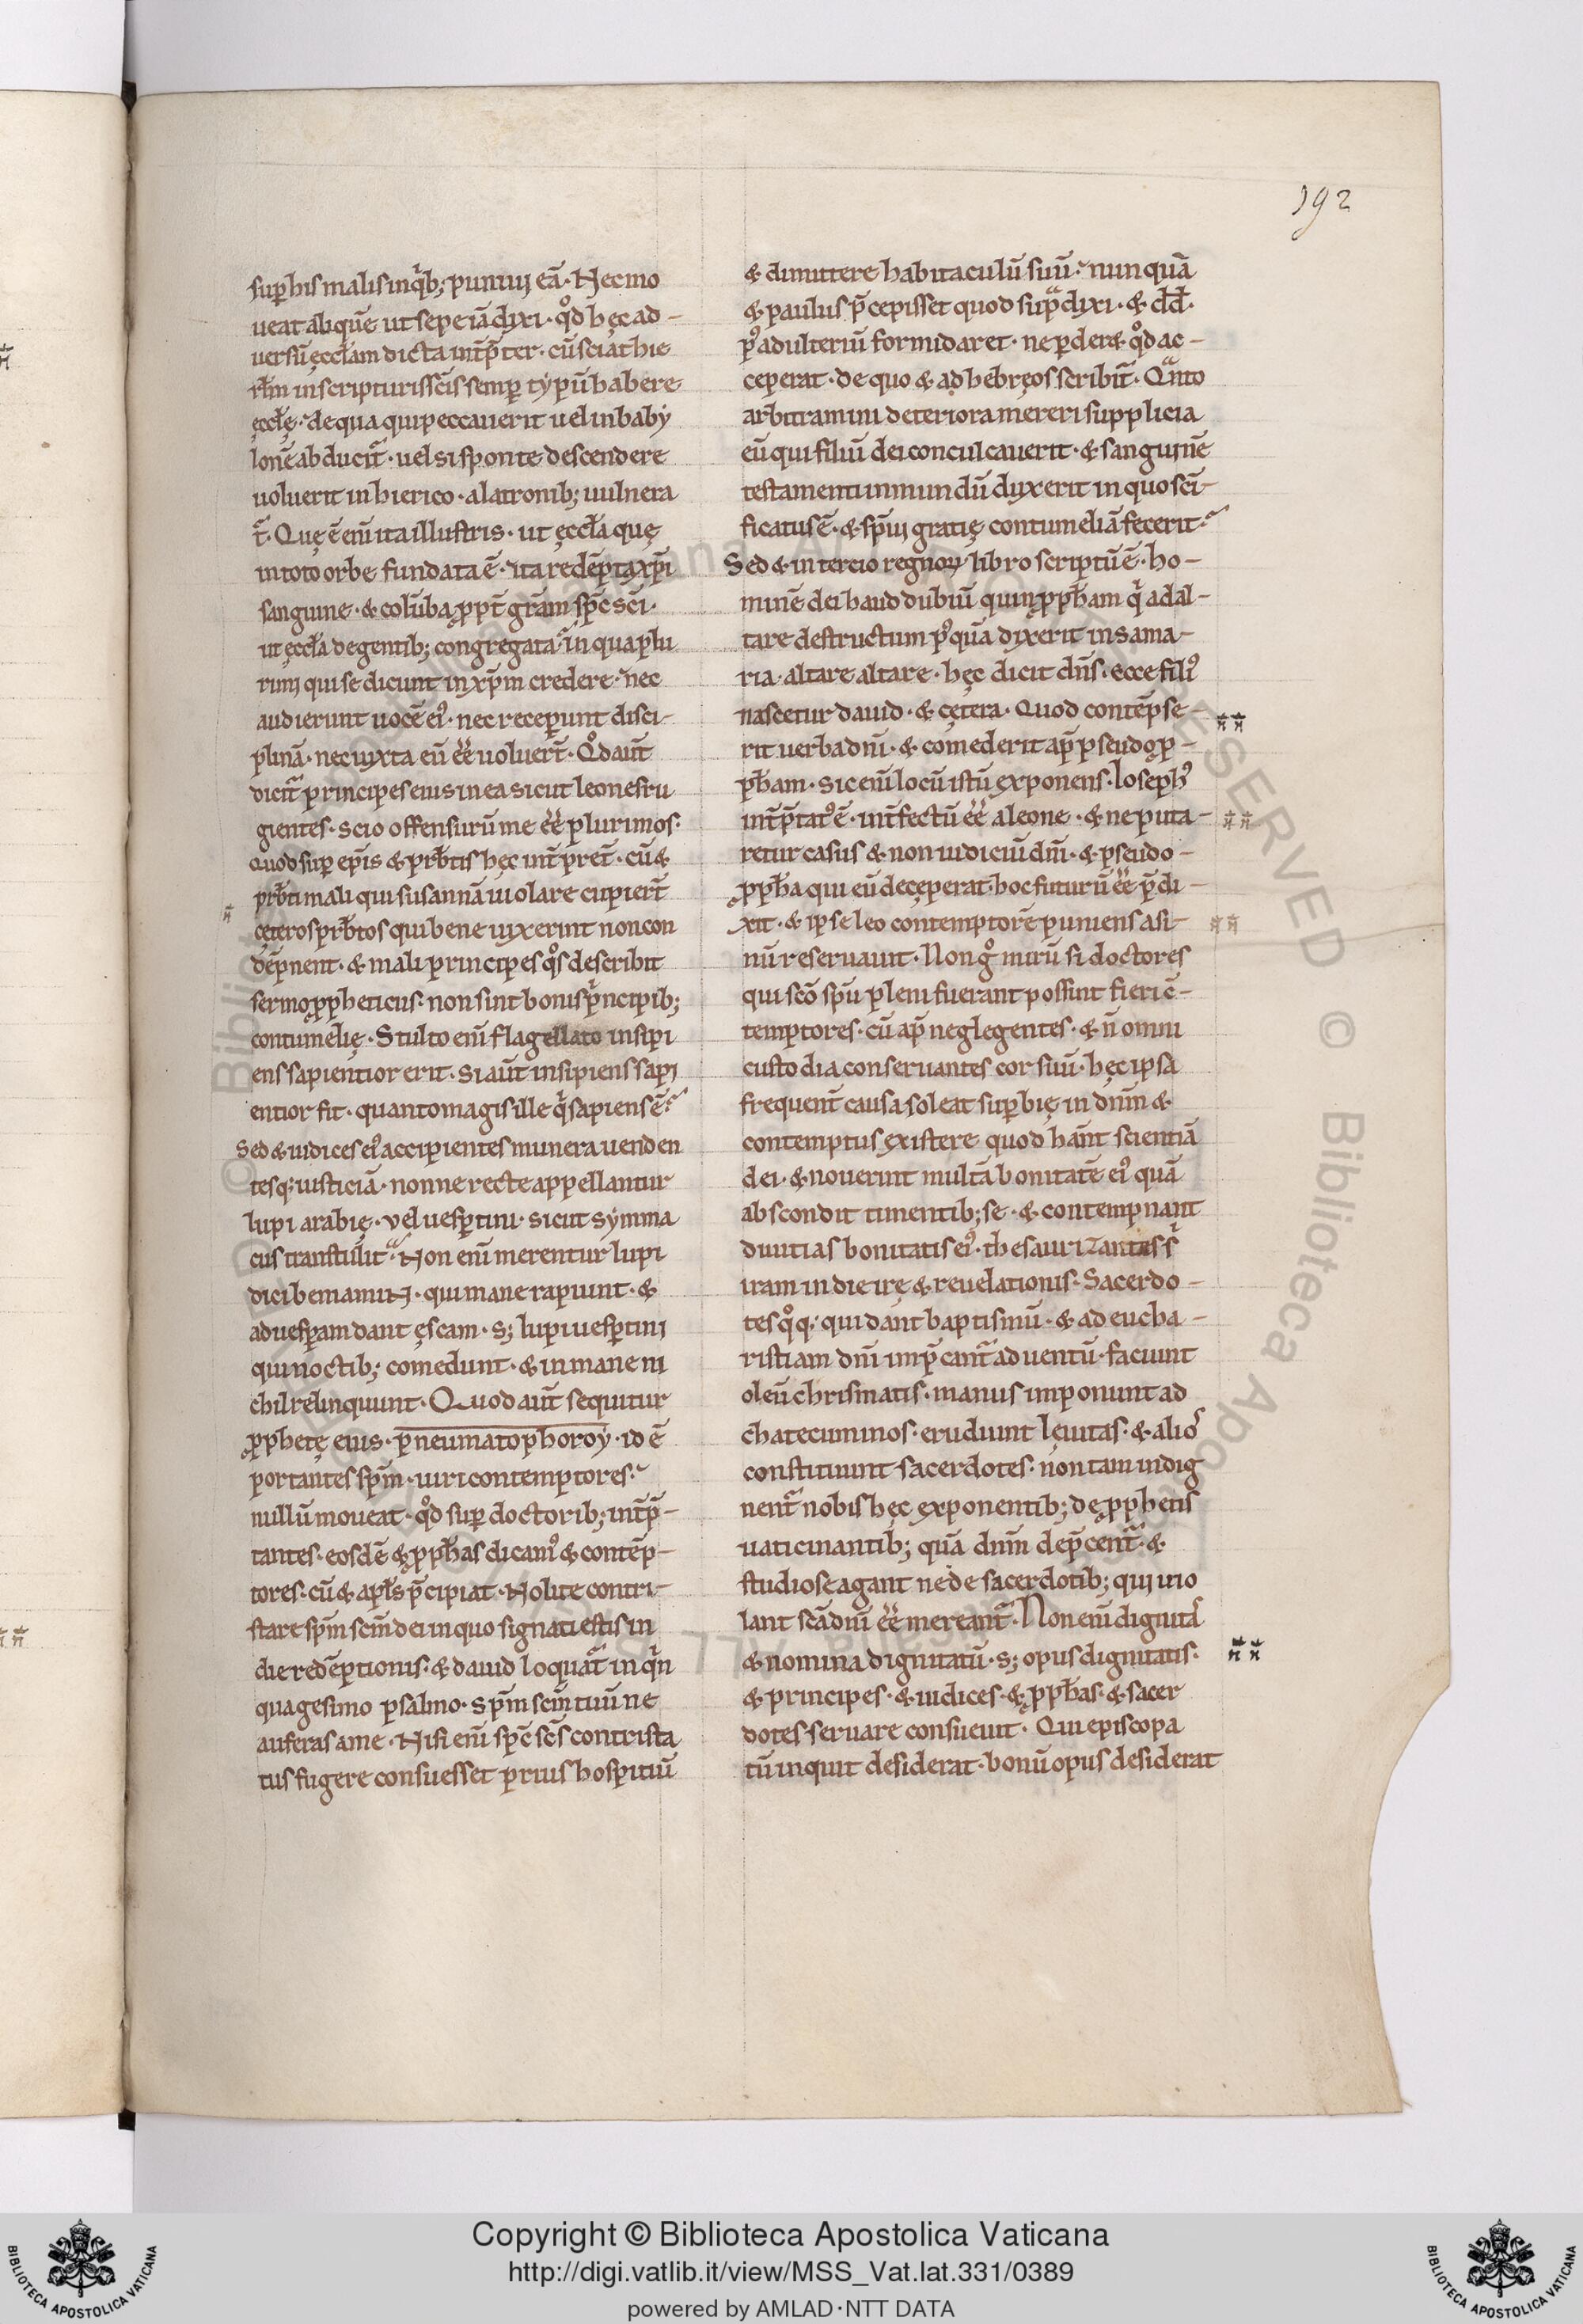 192
sup his malis inqͥb; puniuj eā · Nec mo
ueat aliquē ut sepe iā dyxi · qd̊ hęc ad-
uersū ęcclam dicta int̄p̄ter · cū sciat hie
rłm in scripturis sc̄is semp typū habere
ęcclę · de qua qui peccauerit uel in baby
lonē abducit᷑ · uel si sponte descendere
uoluerit in hierico · a latronib; uulnera
t᷑ · Quę ē enī ita illustris · ut ęccła quę
in toto orbe fundata ē · ita redēpta xp̄i
sanguine · & colūba ꝓpt̄ grām sp̄c sc̄i ·
ut ęccła de gentib; congregata · in qua plu
rimi qui se dicunt in xp̄m credere · nec
audierunt uocē eiꝰ · nec receperunt disci-
plinā · nec iuxta eū ēē uoluer̄t · Qd̊ aut̄
dicit᷑ principes eius in ea sicut leones ru
gientes · scio offensurū me ēē plurimos ·
quod sup ep̄is & prb̄tis hęc int̄pret̄ · cū &
prb̄ti mali qui susannā uiolare cupier̄t
cęteros prb̄tos qui bene uyxerint non con
dēpnent · & mali principes qͦs describit
sermo ꝓpheticus · non sint bonis pͥncipib;
contumelię · Stulto enī flagellato insipi
ens sapientior erit · Si aut̄ insipiens sapi
entior fit · quanto magis ille qͥ sapiens ē ·
Sed & iudices eiꝰ accipientes munera uenden
tesq; iusticiā · nonne recte appellantur
lupi arabię · vel uesptini · sicut symma
cus transtulit · Non enī merentur lupi
dici beniamiN · qui mane rapiunt · &
ad uespam dant ęscam · s; lupi uesptini
qui noctib; comedunt · & in mane ni
chil relinquunt · Quod aut̄ sequitur
ꝓphetę eius · pneumatophoroy · id ē
portantes sp̄m · uiri contemptores ·
nullū moueat · qd̊ sup doctorib; int̄p̄-
tantes · eosdē & ꝓph̄as dicamꝰ & contēp-
tores · cū & apłs p̄cipiat · Nolite contri-
stare sp̄m sc̄m dei in quo signati estis in
die redēptionis · & dauid loquat᷑ in qͥn
quagesimo psalmo · sp̄m sc̄m tuū ne
auferas a me · Nisi enī sp̄c sc̄s contrista
tus fugere consuesset prius hospitiū
& dimittere habitaculū suū · nunquā
& paulus p̄cepisset quod sup̄ dyxi · & dd̄ ·
pꝰ adulteriū formidaret · ne perder& qd̊ ac-
ceperat · de quo & ad hebręos scribit̄ · Qͣnto
arbitramini deteriora mereri supplicia
eū qui filiū dei conculcauerit · & sanguinē
testamenti inmundū dyxerit in quo sc̄i-
ficatus ē · & sp̄ui gratię contumeliā fecerit ·
Sed & in tercio regnoꝝ libro scriptū ē · ho-
minē dei haud dubiū quin ꝓph̄am qͥ ad al-
tare destructum pꝰquā dixerit in sama-
ria · altare altare · hęc dicit dn̄s · ecce filiꝰ
nascetur dauid · & cętera · Quod contēpse-
rit uerba dn̄i · & comederit ap̄ pseudo ꝓ-
ph̄am · sic enī locū istū exponens · Iosephꝰ
int̄p̄tatꝰ ē · int̄fectū ēē a leone · & ne puta-
retur casus & non iudiciū dn̄i · & pseudo-
ꝓph̄a qui eū decęperat · hoc futurū ēē p̄di-
xit · & ipse leo contemptorē puniens asi-
nū reseruauit · Non gͦ mirū si doctores
qui sc̄o sp̄u pleni fuerant possint fieri c̄-
temptores · cū ap̄ neglegentes · & n̄ omni
custodia conseruantes cor suū · hęc ipsa
frequent̄ causa soleat supbię in dn̄m &
contemptus existere quod hān̄t scientiā
dei · & nouerint multā bonitatē eiꝰ quā
abscondit timentib; se · & contempnant
diuitias bonitatis eiꝰ · thesaurizantes sͥ
iram in die irę & reuelationis · Sacerdo-
tes qͦq; qui dant baptismū · & ad eucha-
ristiam dn̄i imp̄cant᷑ aduentū · faciunt
oleū chrismatis · manus imponunt ad
chatecuminos · erudiunt lęuitas · & alioˢ
constituunt sacerdotes · non tam indig
nent᷑ nobis hęc exponentib; & ꝓphetis
uaticinantib; quā dn̄m dep̄cent᷑ · &
studiose agant ne de sacerdotib; qui uio
lant sc̄a dn̄i ēē mereant᷑ · Non enī dignitaˢ
& nomina dignitatū · s; opus dignitatis ·
& principes · & iudices · & ꝓph̄as · & sacer
dotes seruare consueuit · Qui episcopa
tū inquit desiderat · bonū opus desiderat
Copyright © Biblioteca Apostolica Vaticana
http://digi.vatlib.it/view/MSS_Vat.lat.331/0389
powered by AMLAD·NTT DATA
BIBLIOTECA APOSTOLICA VATICANA
BIBLIOTECA APOSTOLICA VATICANA